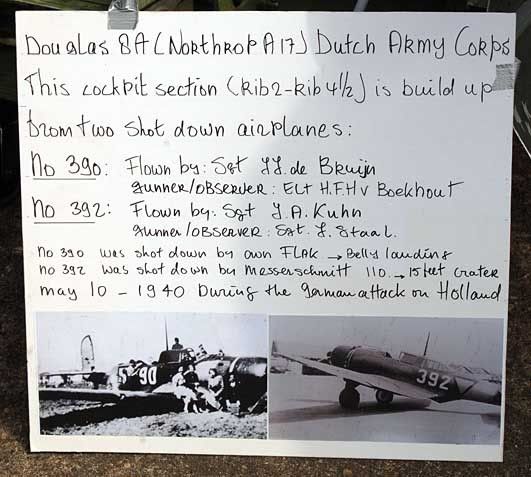 Douglas 8A (Northrop A17) Dutch Army Corps
This cockpit section (Rib2-Rib 4½) is build up
from two shot down airplanes:
No 390: Flown by: Sgt J.J. de Bruijn
gunner/observer: Elt H.F.H v Boekhout
No 392: Flown by: Sgt J.A. Kuhn
gunner/observer: Sgt. J. Staal.
No 390 was shot down by own Flak → Belly landing
No 392 was shot down by Messerschmitt 110 → 15 feet crater
may 10 - 1940 During the german attack on Holland
90
392